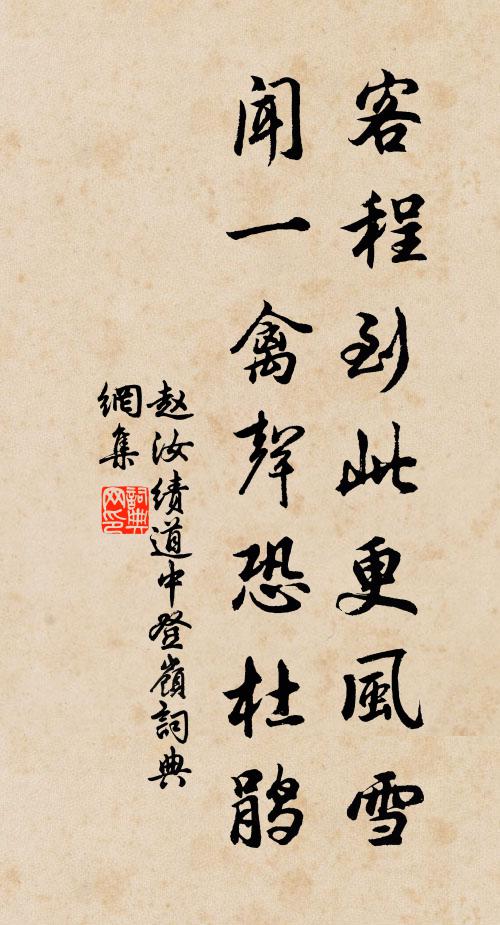 客程到此更風雪
聞一禽聲恐杜鹃
赵汝績道中登嶺詞典
網集
詞典
网印